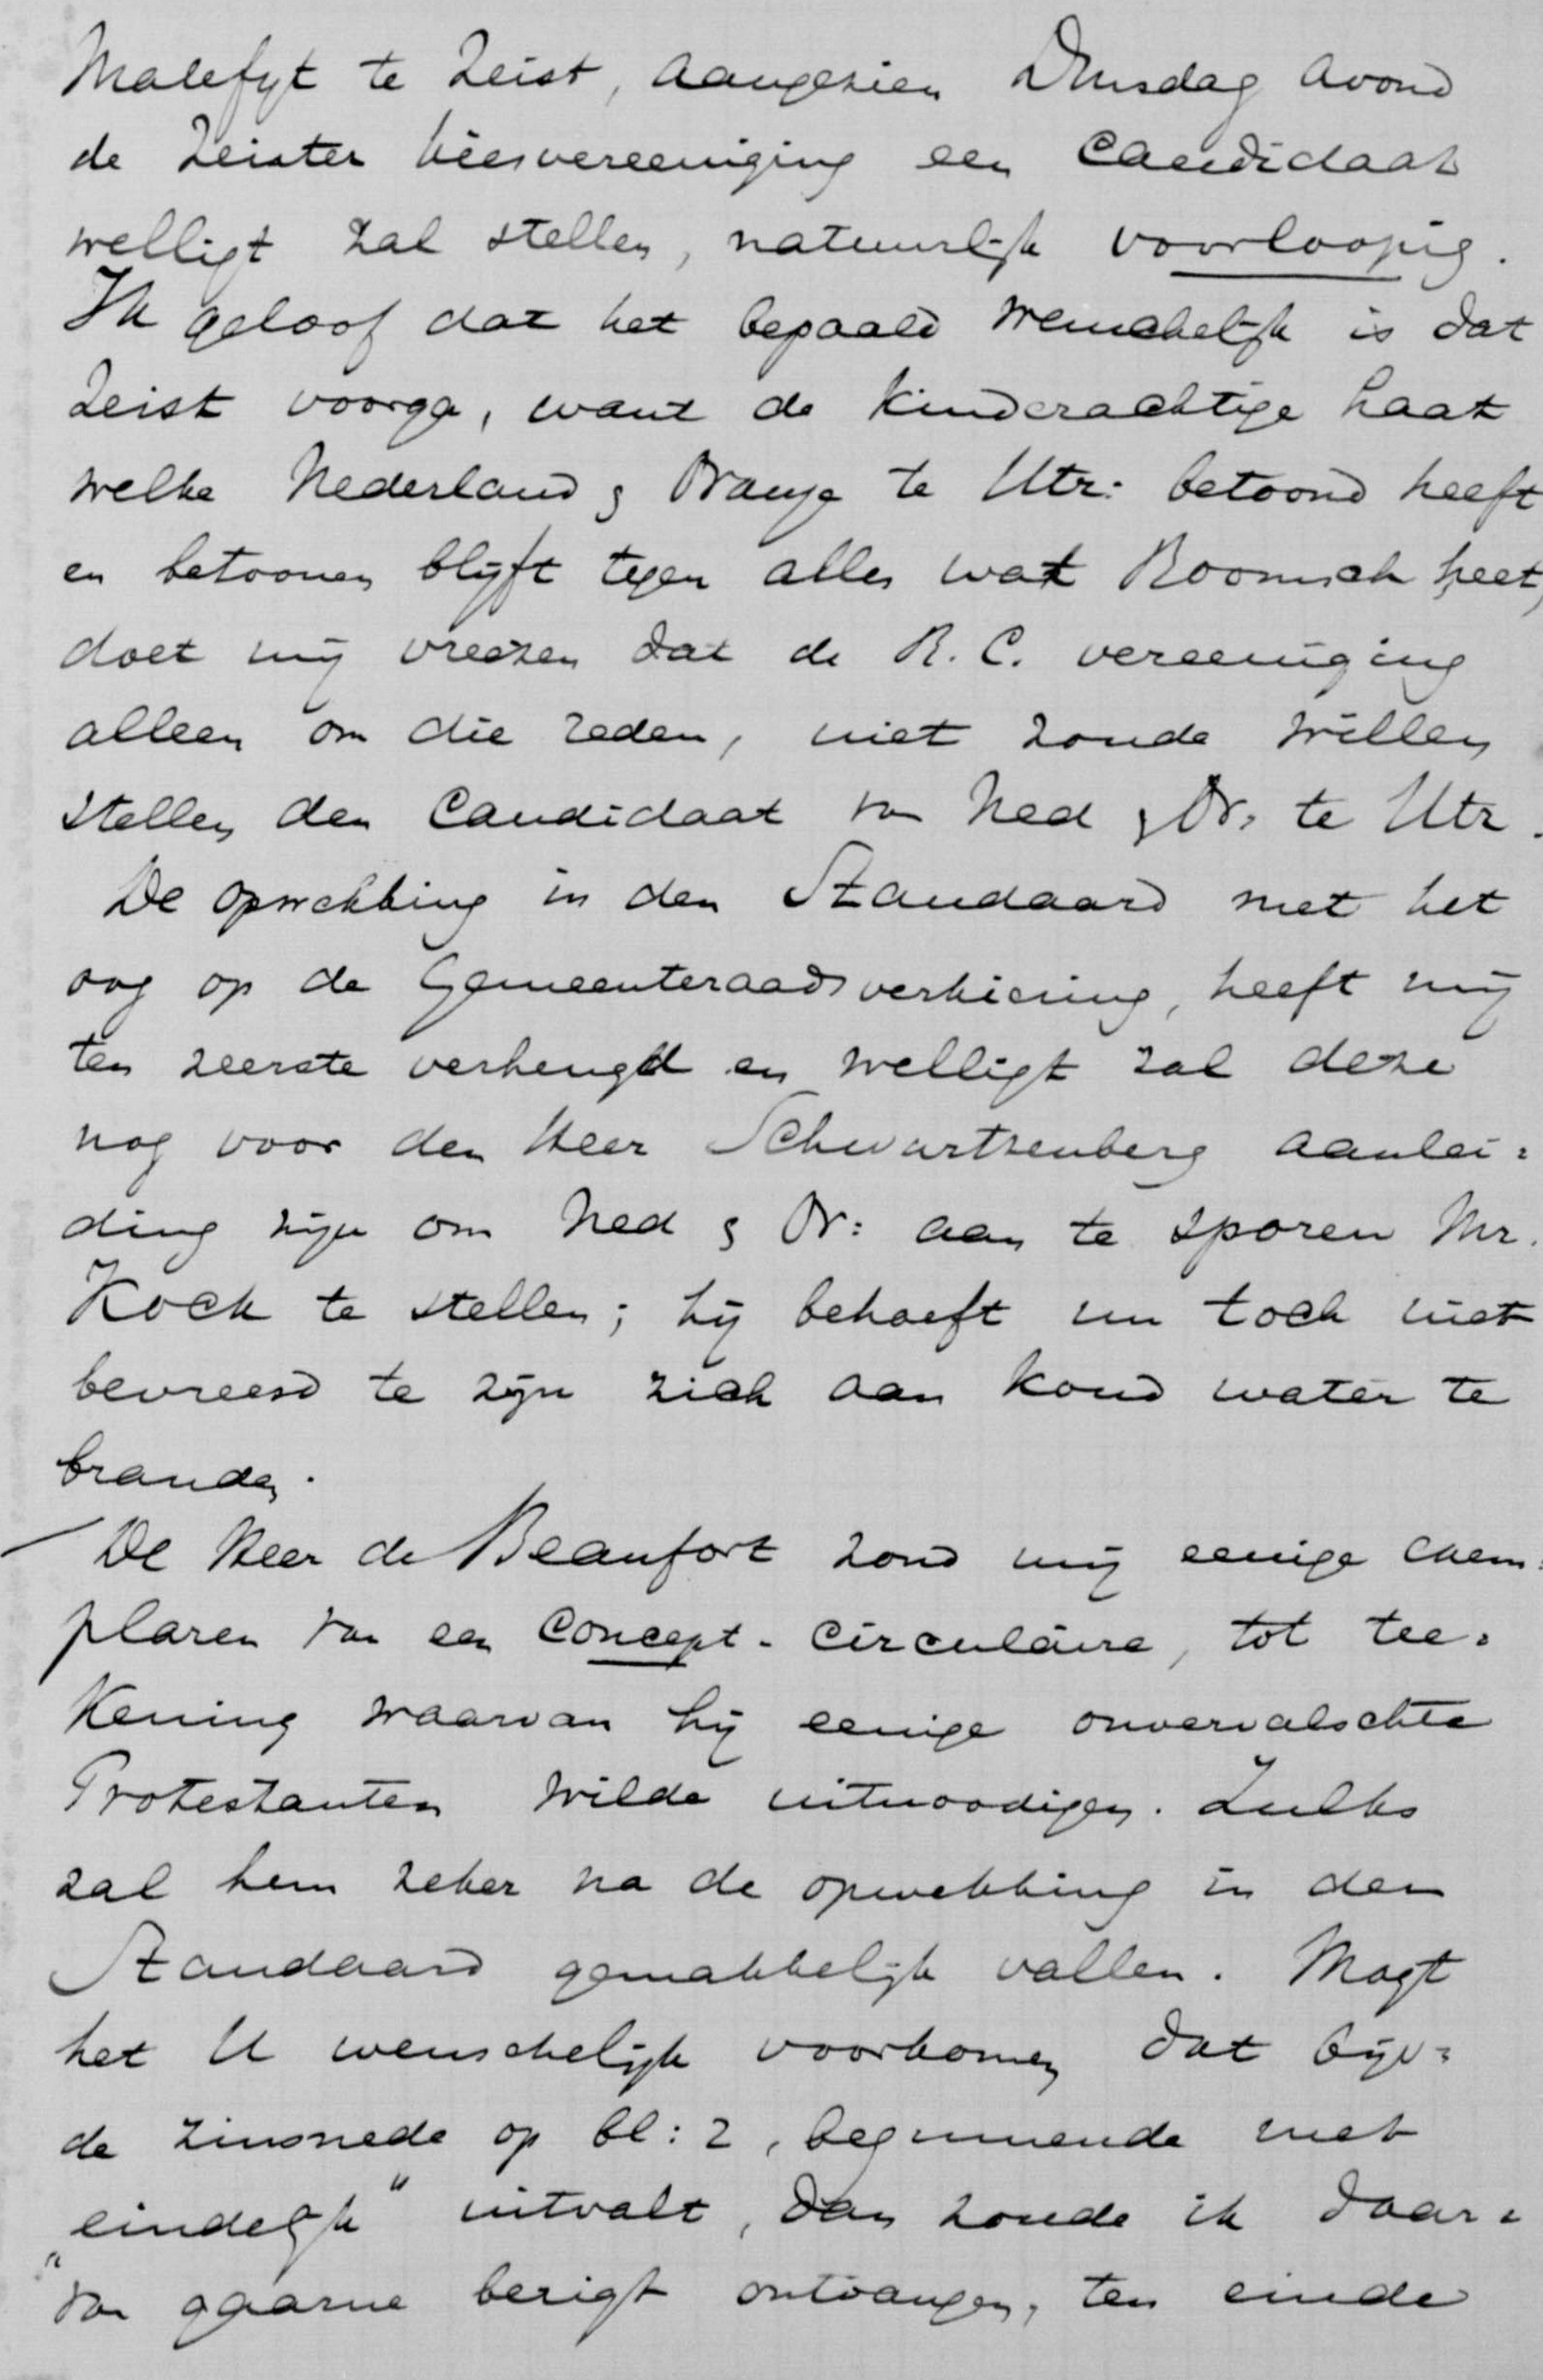 Malefyt te Zeist, aangezien Dinsdag avond
de Zeister kiesvereeniging een Candidaat
welligt zal stellen, natuurlijk voorloopig.
Ik geloof dat het bepaald wenschelijk is dat
Zeist voorga, want de kinderachtige haat
welke Nederland & Oranje te Utr: betoond heeft
en betoonen blijft tegen alles wat Roomsch heet,
doet mij vreezen dat de R. C. vereeniging
alleen om die reden, niet zoude willen
stellen den Candidaat van Ned & Or: te Utr.
De opwekking in den Standaard met het
oog op de Gemeenteraadsverkiezing, heeft mij
ten zeerste verheugd en welligt zal deze
nog voor den Heer Schwartzenberg aanlei=
ding zijn om Ned & Or: aan te sporen Mr.
Koch te stellen; hij behoeft nu toch niet
bevreesd te zijn zich aan koud water te
branden.
De Heer de Beaufort zond mij eenige exem=
plaren van een Concept-Circulaire, tot tee=
kening waarvan hij eenige onvervalschte
Protestanten wilde uitnoodigen. Zulks
zal hem zeker na de opwekking in den
Standaard gemakkelijk vallen. Mogt
het U wenschelijk voorkomen dat bijv=
de zinsnede op bl: 2, beginnende met
„eindelijk" uitvalt, dan zoude ik daar=
van gaarne berigt ontvangen, ten einde